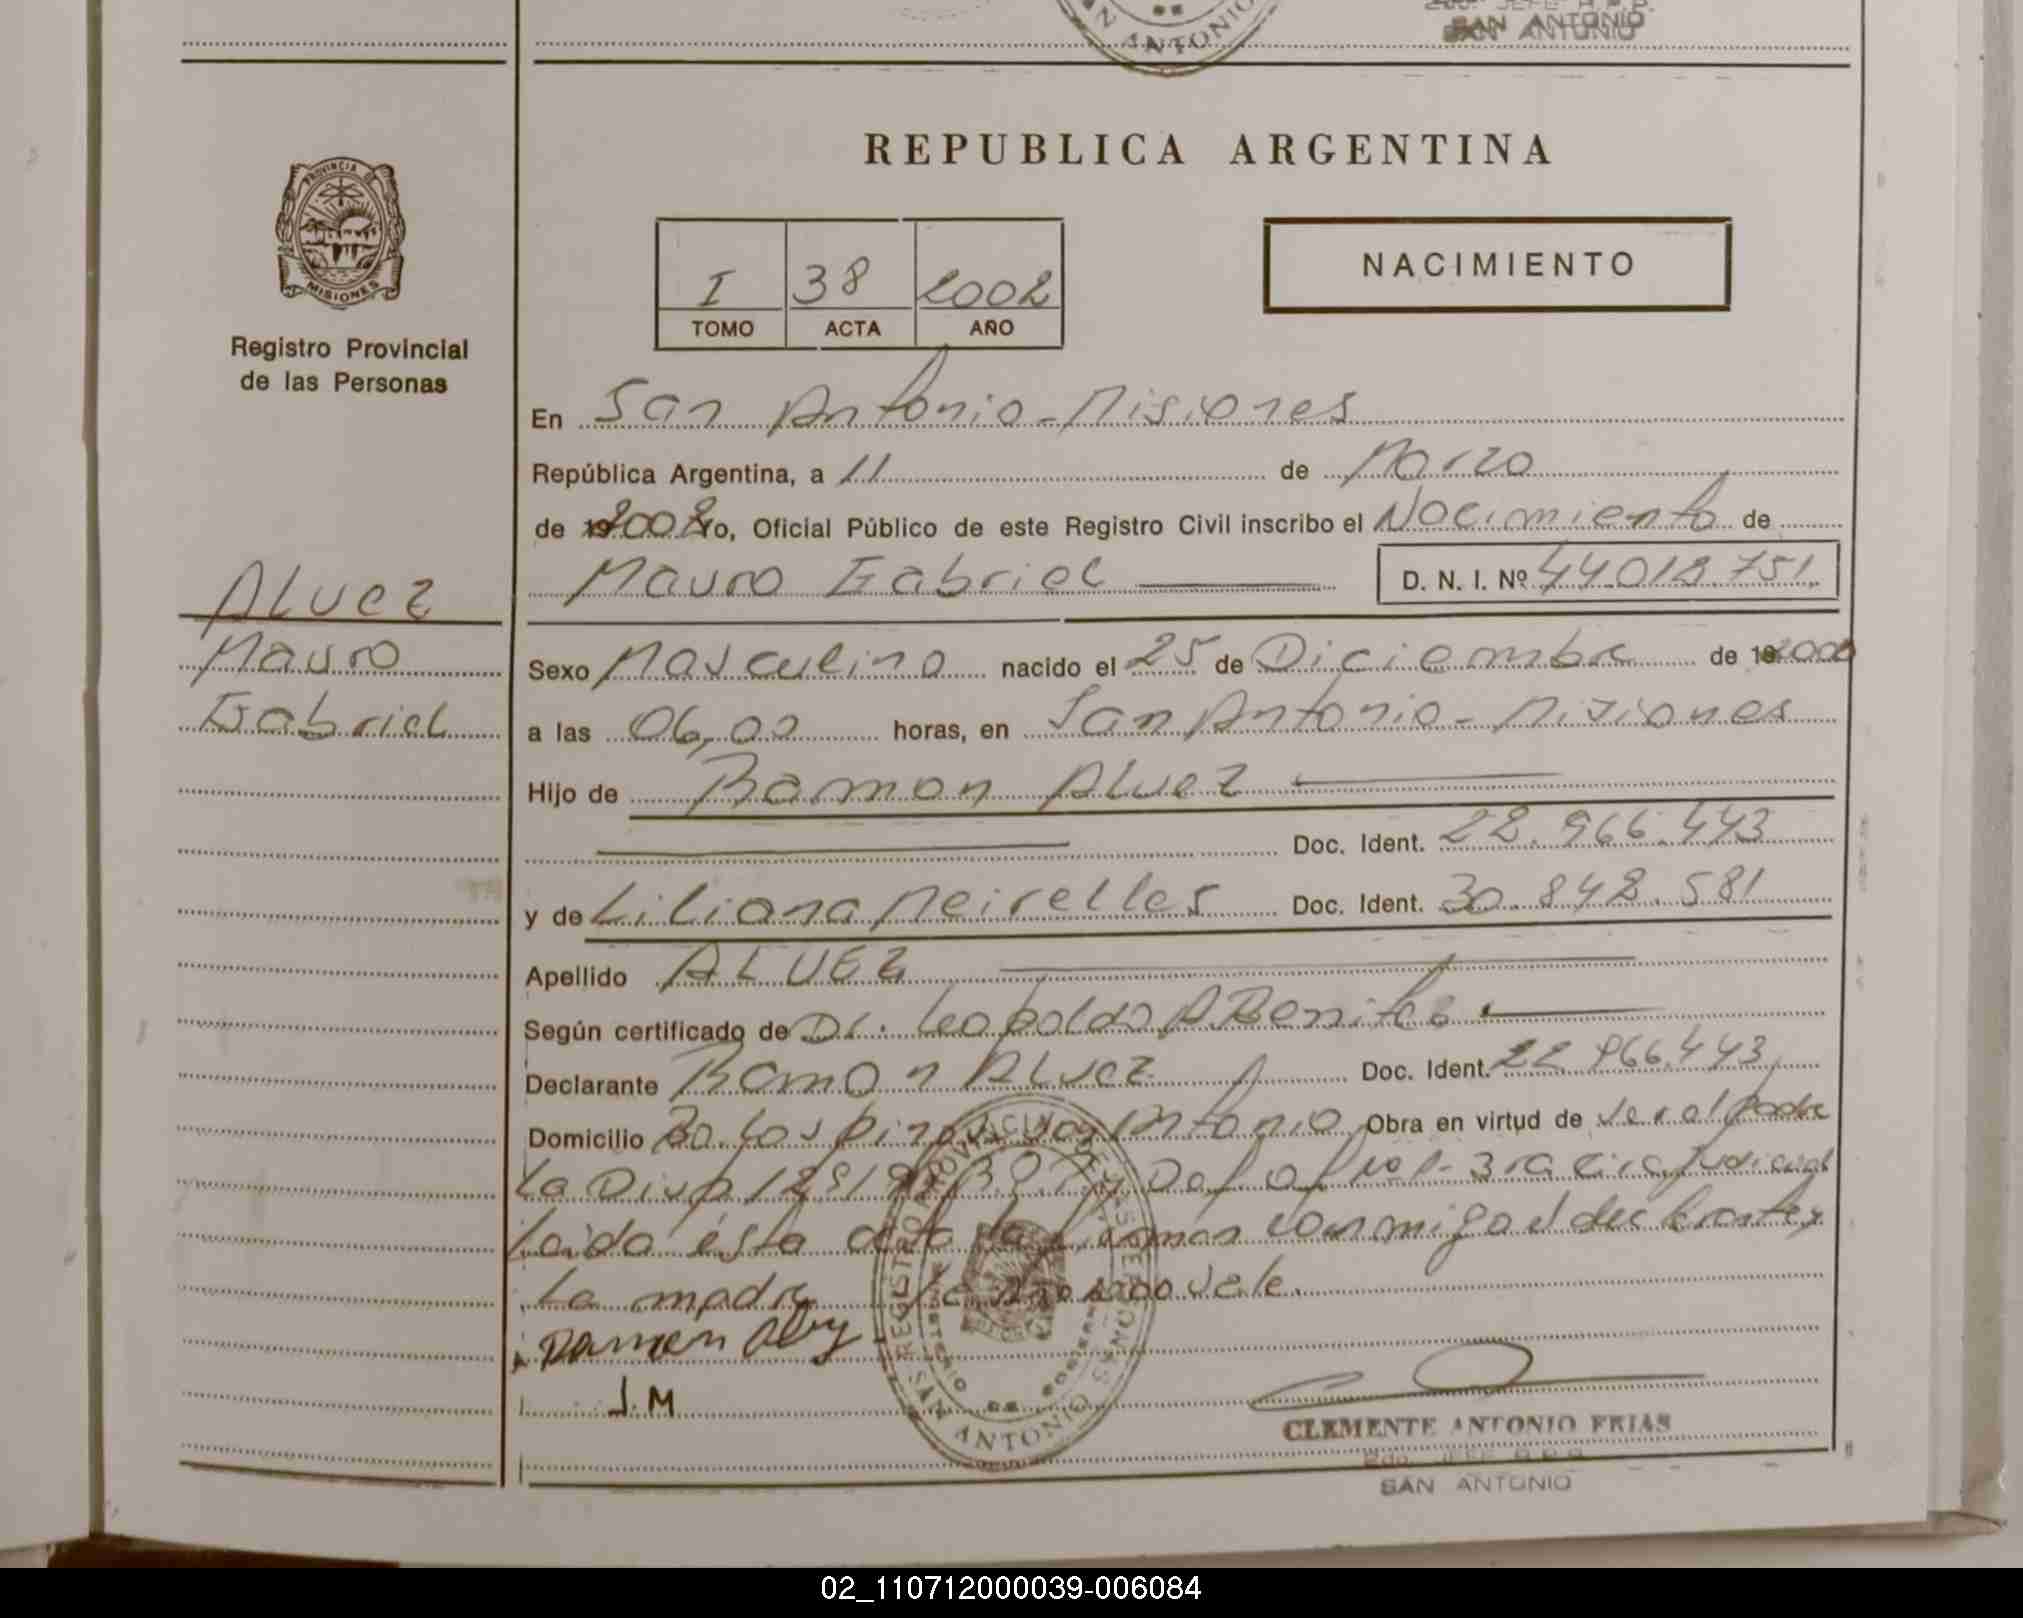 SAN ANTONIO
SAN ANTONIO
REPUBLICA ARGENTINA
PROVINCIA DE
MISIONES
I 38 2002
TOMO ACTA AÑO
NACIMIENTO
Registro Provincial
de las Personas
En San Antonio - Misiones
República Argentina, a 11 de Marzo
de 192002 Yo, Oficial Público de este Registro Civil inscribo el Nacimiento de
Mauro Gabriel D. N. I. Nº 44.018.751
ALVEZ
Mauro
Gabriel
Sexo Masculino nacido el 25 de Diciembre de 19
a las 06,00 horas, en San Antonio - Misiones
Hijo de Ramon Alvez
Doc. Ident. 22.966.443
y de Liliana Meirelles Doc. Ident. 30.842.581
Apellido ALVEZ
Según certificado de Dr. Leopoldo A. Benites
Declarante Ramon Alvez Doc. Ident. 22.966.443
Domicilio Bo. Los Pinos San Antonio Obra en virtud de ser el padre
La Disp 3ra Circ. Judicial
Leida ésta acta la firman conmigo el declarante y
la madre vale.
Ramon
J.M
REGISTRO PROVINCIAL DE LAS PERSONAS
SAN ANTONIO
CLEMENTE ANTONIO FRIAS
2do. JEFE R.P.P.
SAN ANTONIO
02_110712000039-006084